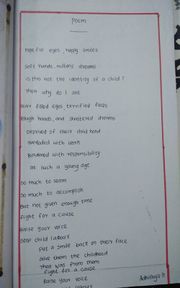 Poem
Hopeful eyes, happy smiles
Soft hands, million dreams
Is this not the identity of a child?
Then why do I see
tear filled eyes, terrified faces
Rough hands, and shattered dreams
Deprived of their childhood
burdened with work
Burdened with responsibility
at such a young age
So much to
So much to accomplish
But not given enough time
Fight for a cause
Raise your voice
Stop child labour
Put a smile back on their face
Give them the childhood
That was from them
Fight for a cause
Raise your voice